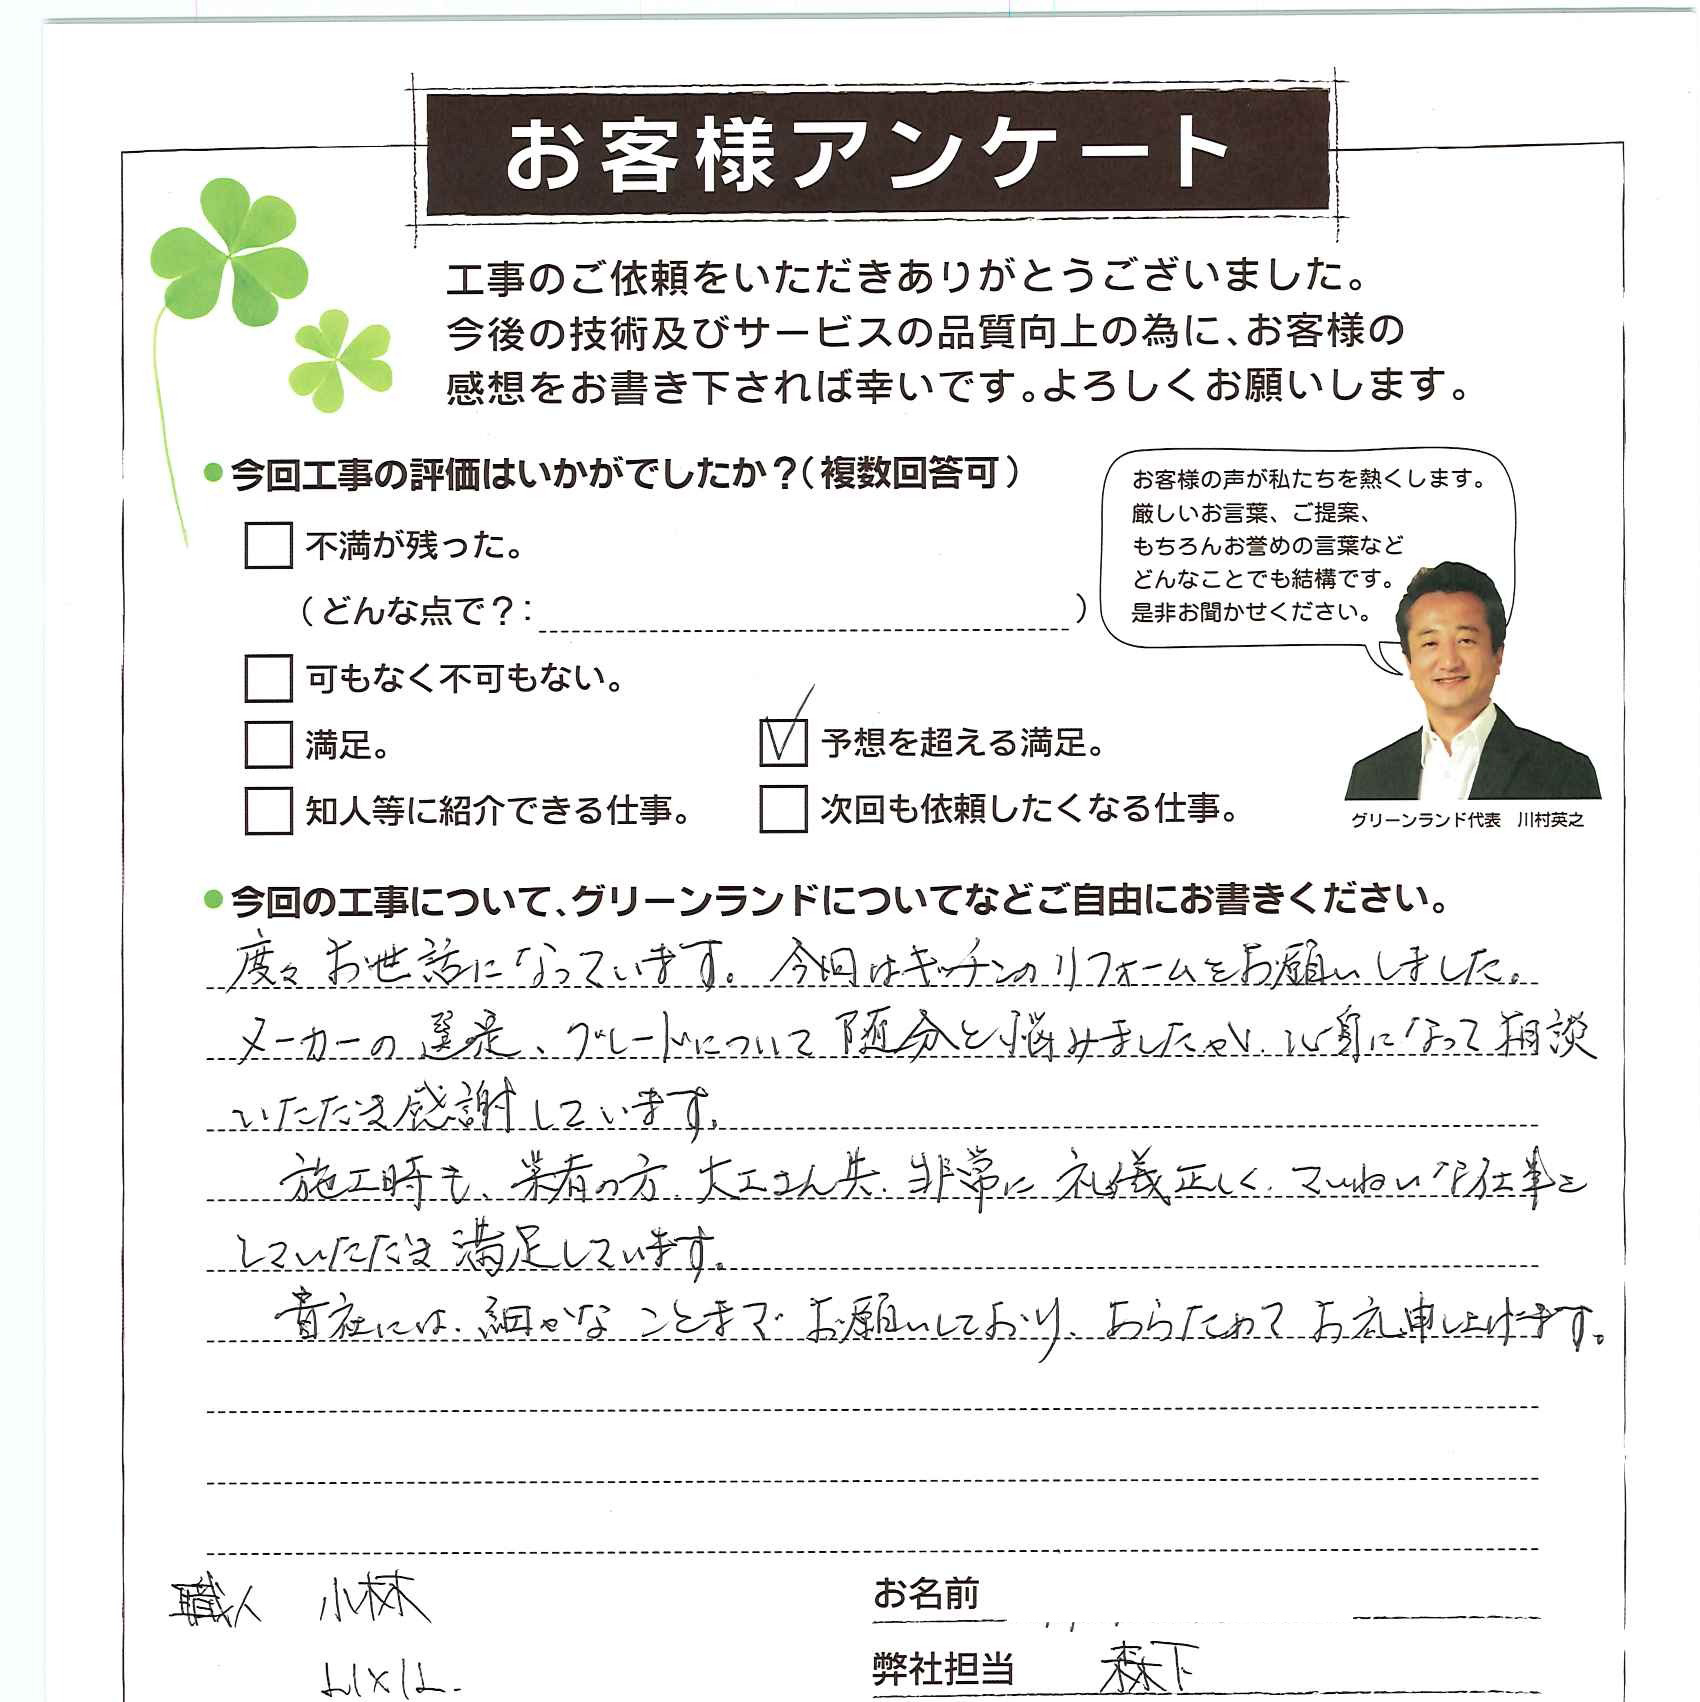 お客様アンケート
工事のご依頼をいただきありがとうございました。
今後の技術及びサービスの品質向上の為に、お客様の
感想をお書き下されば幸いです。よろしくお願いします。
今回工事の評価はいかがでしたか？（複数回答可）
不満が残った。
（どんな点で？：　　　）
可もなく不可もない。
満足。
予想を超える満足。
知人等に紹介できる仕事。
次回も依頼したくなる仕事。
お客様の声が私たちを熱くします。
厳しいお言葉、ご提案、
もちろんお誉めの言葉など
どんなことでも結構です。
是非お聞かせください。
グリーンランド代表　川村英之
今回の工事について、グリーンランドについてなどご自由にお書きください。
度々お世話になっています。今回はキッチンのリフォームをお願いしました。
メーカーの選定、グレードについて随分と悩みましたが、心身になって相談
いただき感謝しています。
施工時も、業者の方、大工さん共、非常に礼儀正しく、ていねいな仕事を
していただき満足しています。
貴社には、細かなことまでお願いしており、あらためてお礼申し上げます。
職人　小林
お名前
LIXIL.
弊社担当　森下